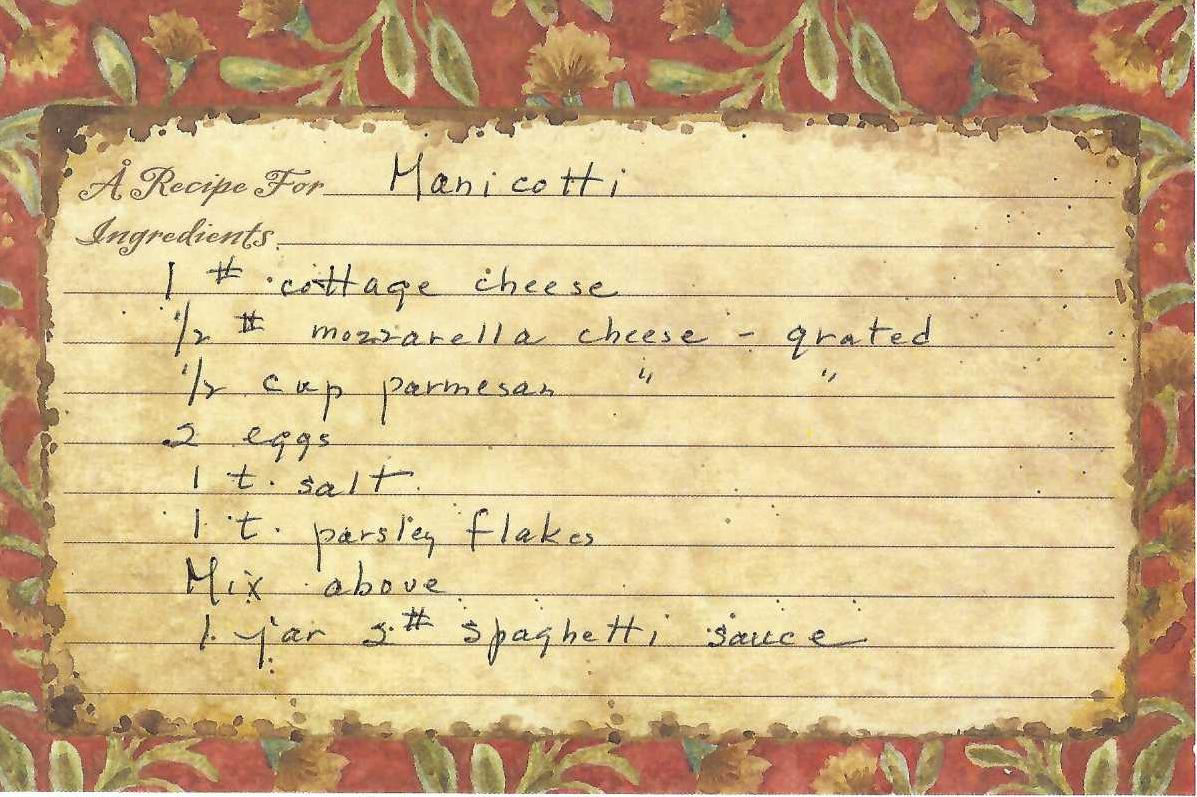 A Recipe For Manicotti
Ingredients
1 # cottage cheese
1/2 # mozzarella cheese - grated
1/2 cup parmesan " "
2 eggs
1 t. salt
1 t. parsley flakes
Mix above
1 jar # spaghetti sauce